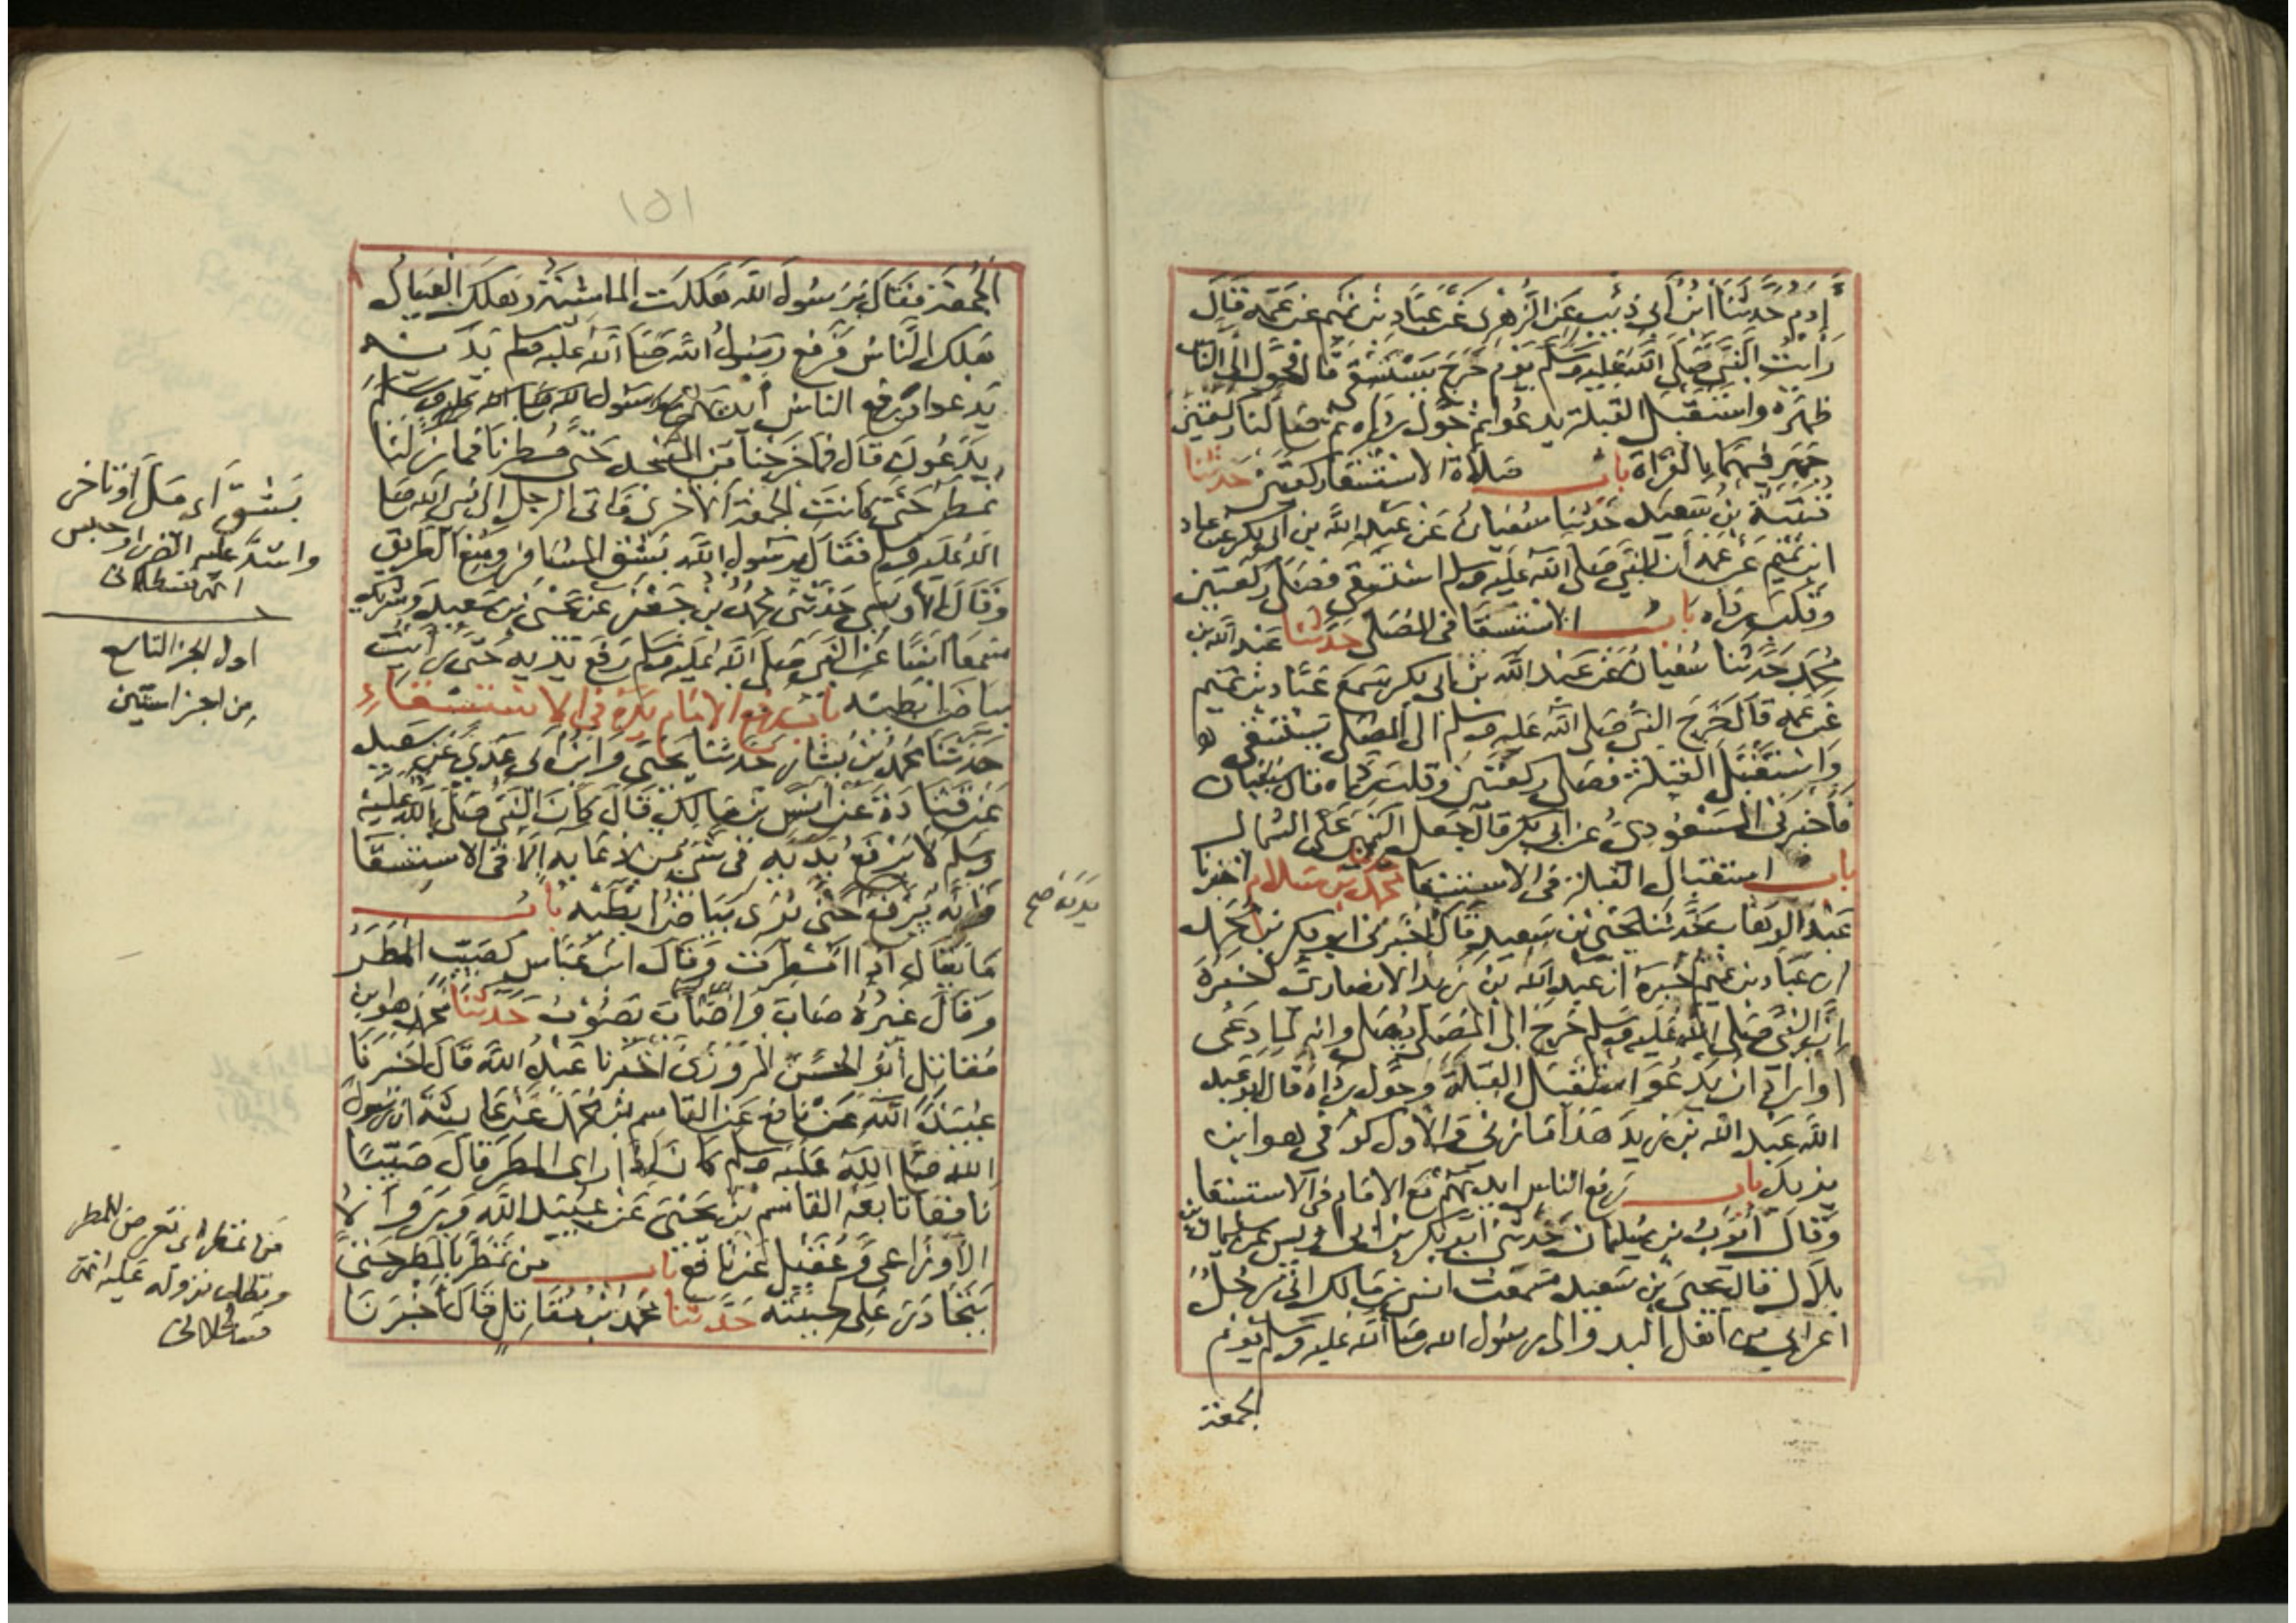 آدم حدثنا ابن ابي ذئب عن الزهري عن عباد بن تميم عن عمه قال
رايت النبي صلى الله عليه وسلم يوم خرج يستسقي قال فحول الى الناس
ظهره واستقبل القبلة يدعو ثم حول رداه ثم صلى لنا ركعتين
جهر فيهما بالقراة باب صلاة الاستسقا ركعتين حدثنا
قتيبة بن سعيد حدثنا سفيان عن عبد الله بن ابي بكر عن عباد
ابن تميم عن عمه ان النبي صلى الله عليه وسلم استسقى فصلى ركعتين
وقلب رداه باب الاستسقا في المصلى حدثنا عبد الله بن
محمد حدثنا سفيان عن عبد الله بن ابي بكر سمع عباد بن تميم
عن عمه قال خرج النبي صلى الله عليه وسلم الى المصلى يستسقي
واستقبل القبلة فصلى ركعتين وقلب رداه قال سفيان
فاخبرني المسعودي عن ابي بكر قال جعل اليمين على الشمال
باب استقبال القبلة في الاستسقا حدثنا محمد بن سلام اخبرنا
عبد الوهاب حدثنا يحيى بن سعيد قال اخبرني ابو بكر بن محمد
ان عباد بن تميم اخبره ان عبد الله بن زيد الانصاري اخبره
ان النبي صلى الله عليه وسلم خرج الى المصلى يصلي وانه لما دعى
او اراد ان يدعو استقبل القبلة وحول رداه قال ابو عبد
الله عبد الله بن زيد هذا مازني والاول كوفي هو ابن
يزيد باب رفع الناس ايديهم مع الامام في الاستسقا
وقال ايوب بن سليمان حدثني ابو بكر بن ابي اويس عن سليمان بن
بلال قال يحيى بن سعيد سمعت انس بن مالك اتى رجل
اعرابي من اهل البدو الى رسول الله صلى الله عليه وسلم يوم
الجمعة
١٥١
الجمعة فقال يرسول الله هلكت الماشية وهلك العيال
هلك الناس فرفع رسول الله صلى الله عليه وسلم يديه
يدعوا ورفع الناس ايديهم مع رسول الله صلى الله عليه وسلم
يدعون قال فما خرجنا من المسجد حتى مطرنا فما زلنا
نمطر حتى كانت الجمعة الاخرى فاتى الرجل الى نبي الله صلى
الله عليه وسلم فقال يرسول الله بشق المسافر ومنع الطريق
وقال الاويسي حدثني محمد بن جعفر عن يحيى بن سعيد وشريك
سمعا انسا عن النبي صلى الله عليه وسلم رفع يديه حتى رايت
بياض ابطيه باب رفع الامام يده في الاستسقاء
حدثنا محمد بن بشار حدثنا يحيى وابن ابي عدي عن سعيد
عن قتادة عن انس بن مالك قال كان النبي صلى الله عليه
وسلم لا يرفع يديه في شي من دعايه الا في الاستسقا
فانه يرفع حتى يرى بياض ابطيه باب
ما يقال اذا امطرت وقال ابن عباس كصيب المطر
وقال غيره صاب واصاب يصوب حدثنا محمد هو ابن
مقاتل ابو الحسن المروزي اخبرنا عبد الله قال اخبرنا
عبيد الله عن نافع عن القاسم بن محمد عن عايشة ان رسول
الله صلى الله عليه وسلم كان اذا راى المطر قال صيبا
نافعا تابعه القاسم بن يحيى عن عبيد الله ورواه
الاوزاعي وعقيل عن نافع باب من تمطر بالمطر حتى
يتحادر على لحيته حدثنا محمد بن مقاتل قال اخبرنا
بشق اي مل او تاخر
واشتد عليه الضرر او حبس
انتهى قسطلاني
اول الجز التاسع
من اجزا ستين
يديه صح
من تمطر اي تعرض للمطر
وتطلب نزوله عليه انتهى
قسطلاني